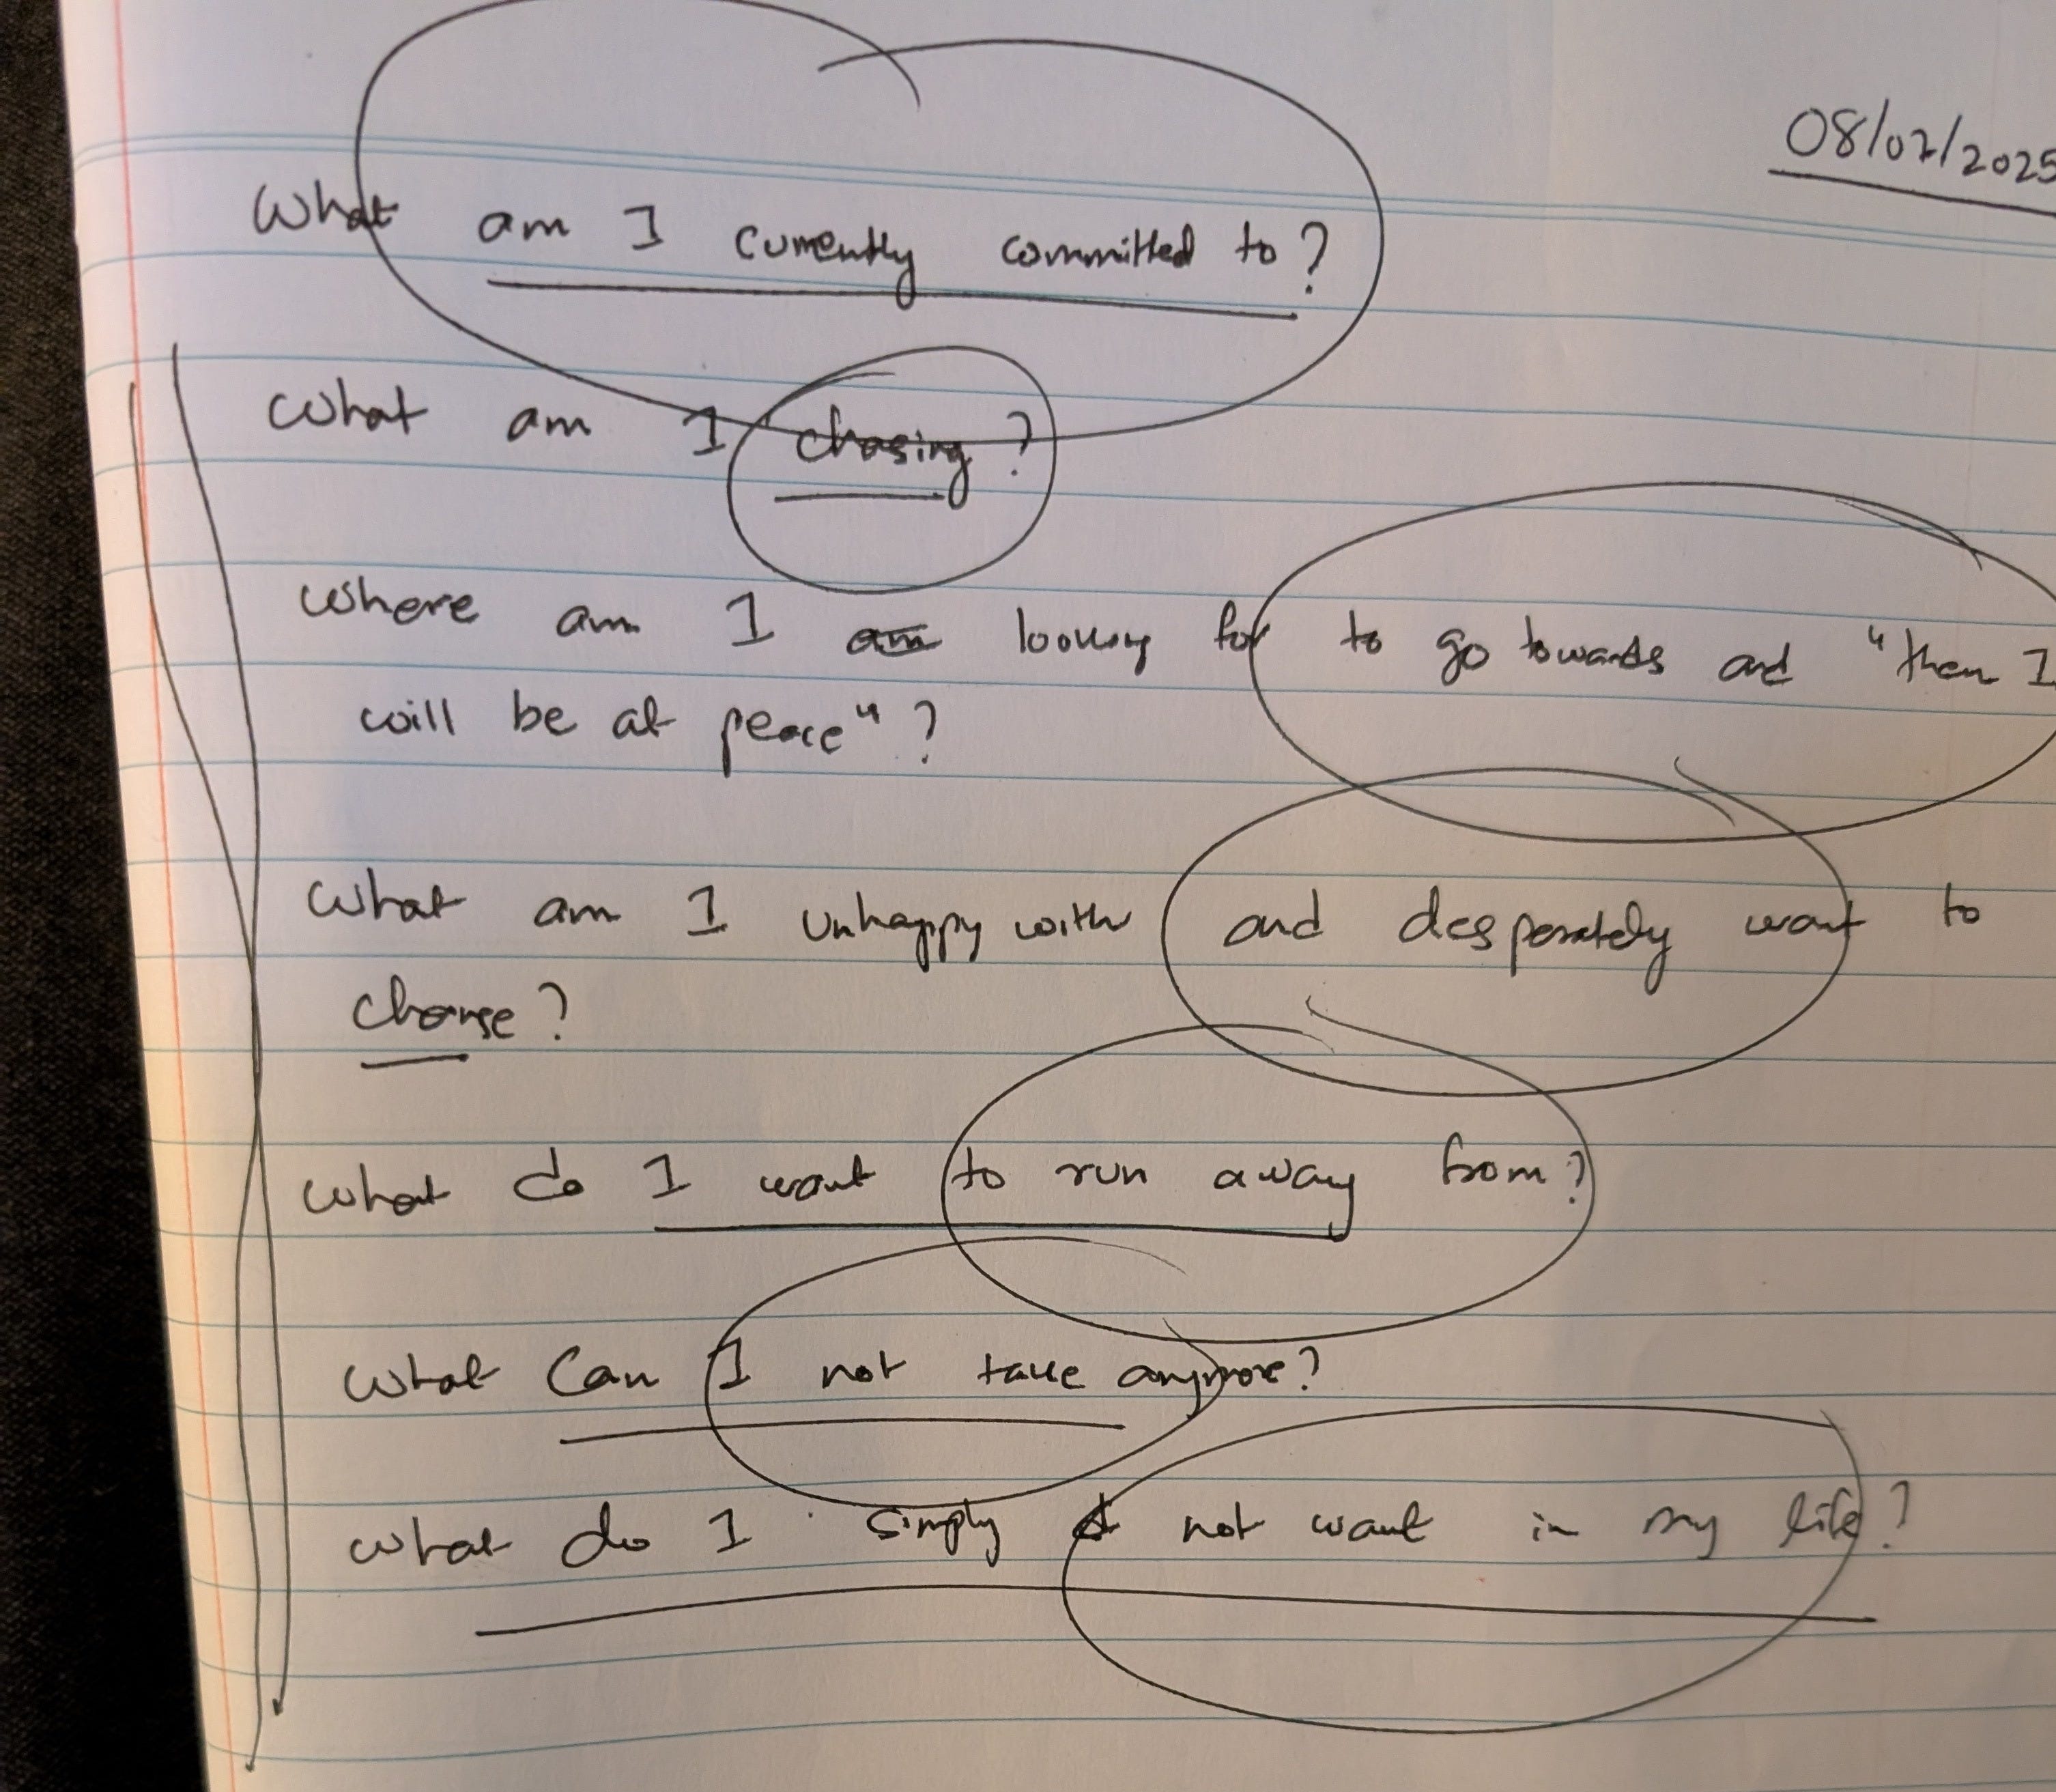 08/07/2025
What am I currently committed to?
What am I chasing?
Where am I am looking for to go towards and "then I
will be at peace"?
What am I unhappy with and desperately want to
change?
What do I want to run away from?
What can I not take anymore?
What do I simply not want in my life?